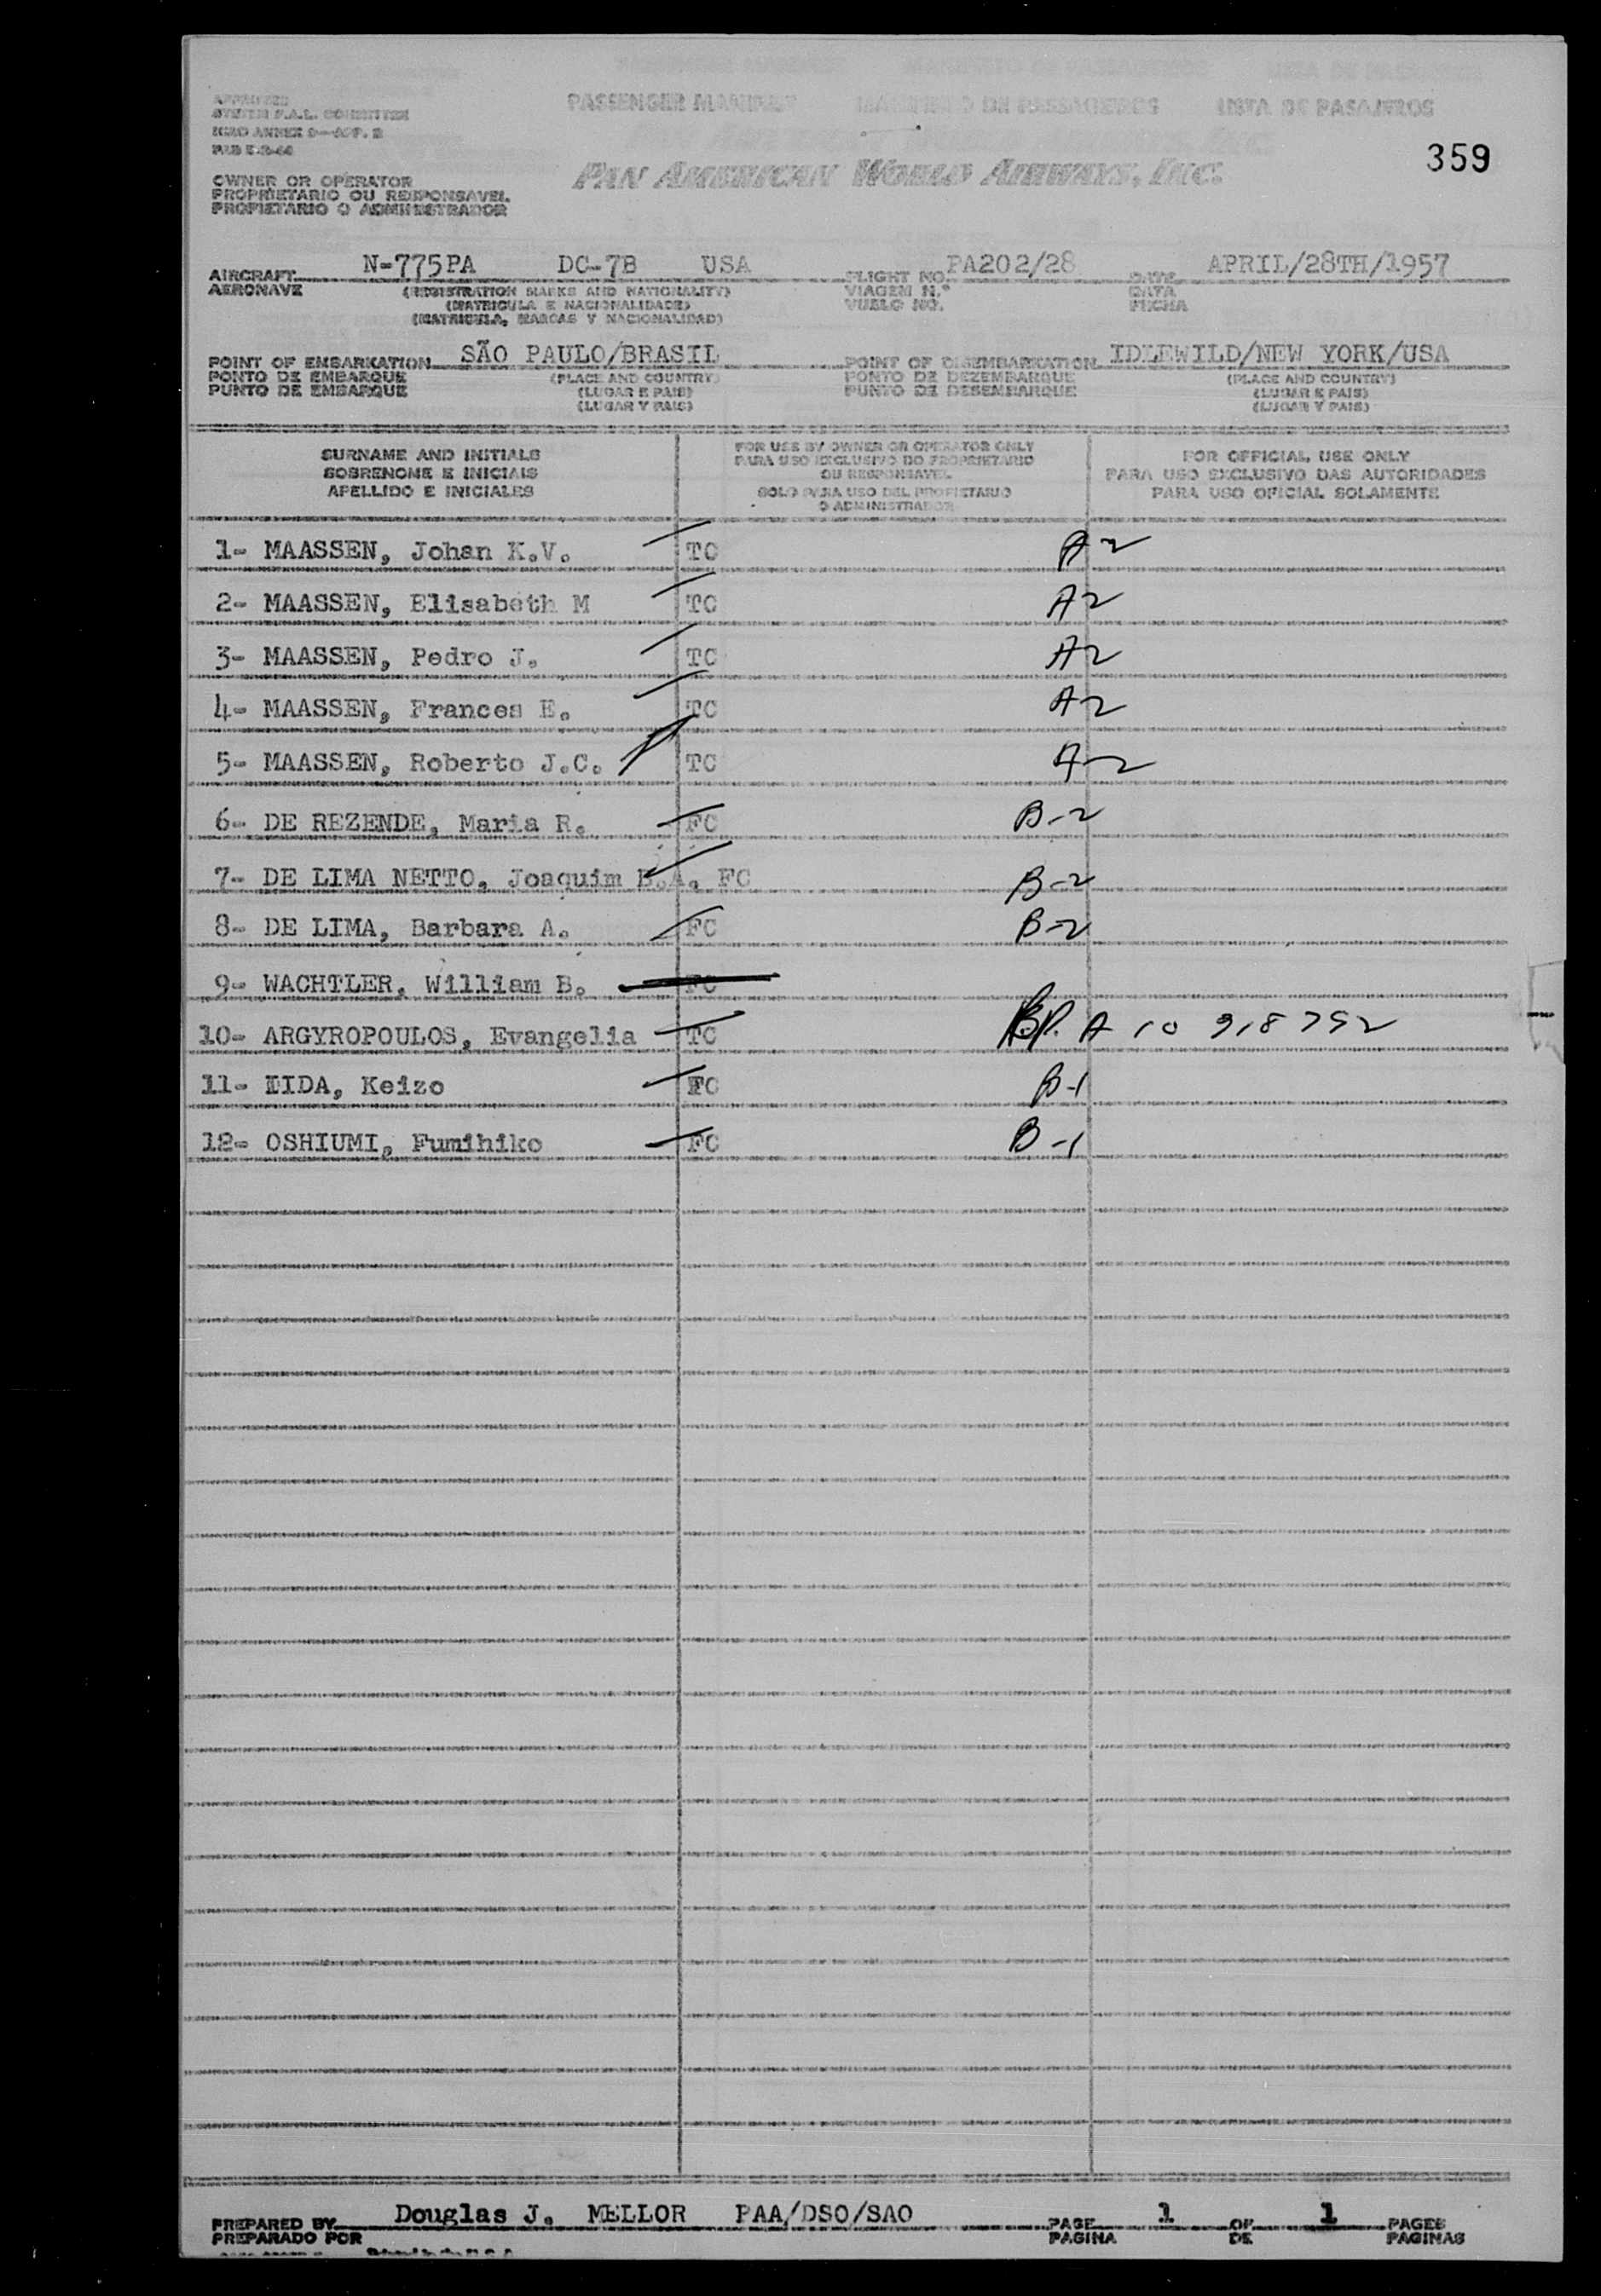 PASSENGER MANIFEST MANIFESTO DE PASSAGEIROS LISTA DE PASAJEROS
APPROVED
SYSTEM F.A.L. COMMITTEE
ICAO ANNEX 9—APP. 2
359
PAN AMERICAN WORLD AIRWAYS, INC.
OWNER OR OPERATOR
PROPRIETARIO OU RESPONSAVEL
PROPIETARIO O ADMINISTRADOR
AIRCRAFT N-775PA DC-7B USA FLIGHT NO. PA202/28 DATE APRIL/28TH/1957
AERONAVE (REGISTRATION MARKS AND NATIONALITY) VIAGEM N.º DATA
(MATRICULA E NACIONALIDADE) VUELO NO. FECHA
(MATRICULA, MARCAS Y NACIONALIDAD)
POINT OF EMBARKATION SÃO PAULO/BRASIL POINT OF DISEMBARKATION IDLEWILD/NEW YORK/USA
PONTO DE EMBARQUE (PLACE AND COUNTRY) PONTO DE DEZEMBARQUE (PLACE AND COUNTRY)
PUNTO DE EMBARQUE (LUGAR E PAIS) PUNTO DE DESEMBARQUE (LUGAR E PAIS)
(LUGAR Y PAIS) (LUGAR Y PAIS)
SURNAME AND INITIALS
SOBRENOME E INICIAIS
APELLIDO E INICIALES
FOR USE BY OWNER OR OPERATOR ONLY
PARA USO EXCLUSIVO DO PROPRIETARIO
OU RESPONSAVEL
SOLO PARA USO DEL PROPIETARIO
O ADMINISTRADOR
FOR OFFICIAL USE ONLY
PARA USO EXCLUSIVO DAS AUTORIDADES
PARA USO OFICIAL SOLAMENTE
1- MAASSEN, Johan K.V. TC A2
2- MAASSEN, Elisabeth M TC A2
3- MAASSEN, Pedro J. TC A2
4- MAASSEN, Frances E. TC A2
5- MAASSEN, Roberto J.C. TC A-2
6- DE REZENDE, Maria R. FC B-2
7- DE LIMA NETTO, Joaquim B.A. FC B-2
8- DE LIMA, Barbara A. FC B-2
9- WACHTLER, William B. FC
10- ARGYROPOULOS, Evangelia TC A 10 918 792
11- IIDA, Keizo FC B-1
12- OSHIUMI, Fumihiko FC B-1
PREPARED BY Douglas J. MELLOR PAA/DSO/SAO PAGE 1 OF 1 PAGES
PREPARADO POR PAGINA DE PAGINAS